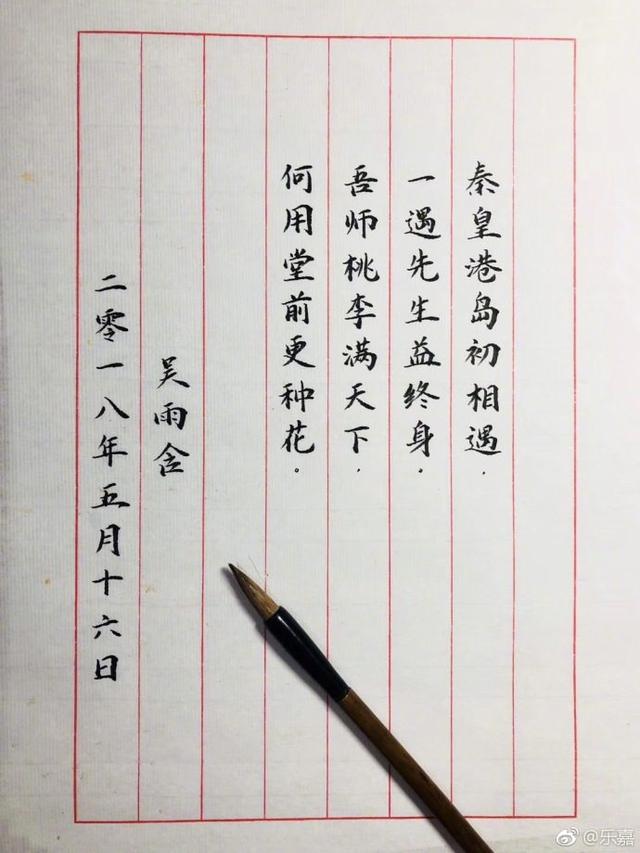 秦皇港岛初相遇.
一遇先生益终身.
吾师桃李满天下.
何用堂前更种花。
吴雨含
二零一八年五月十六日
@乐嘉